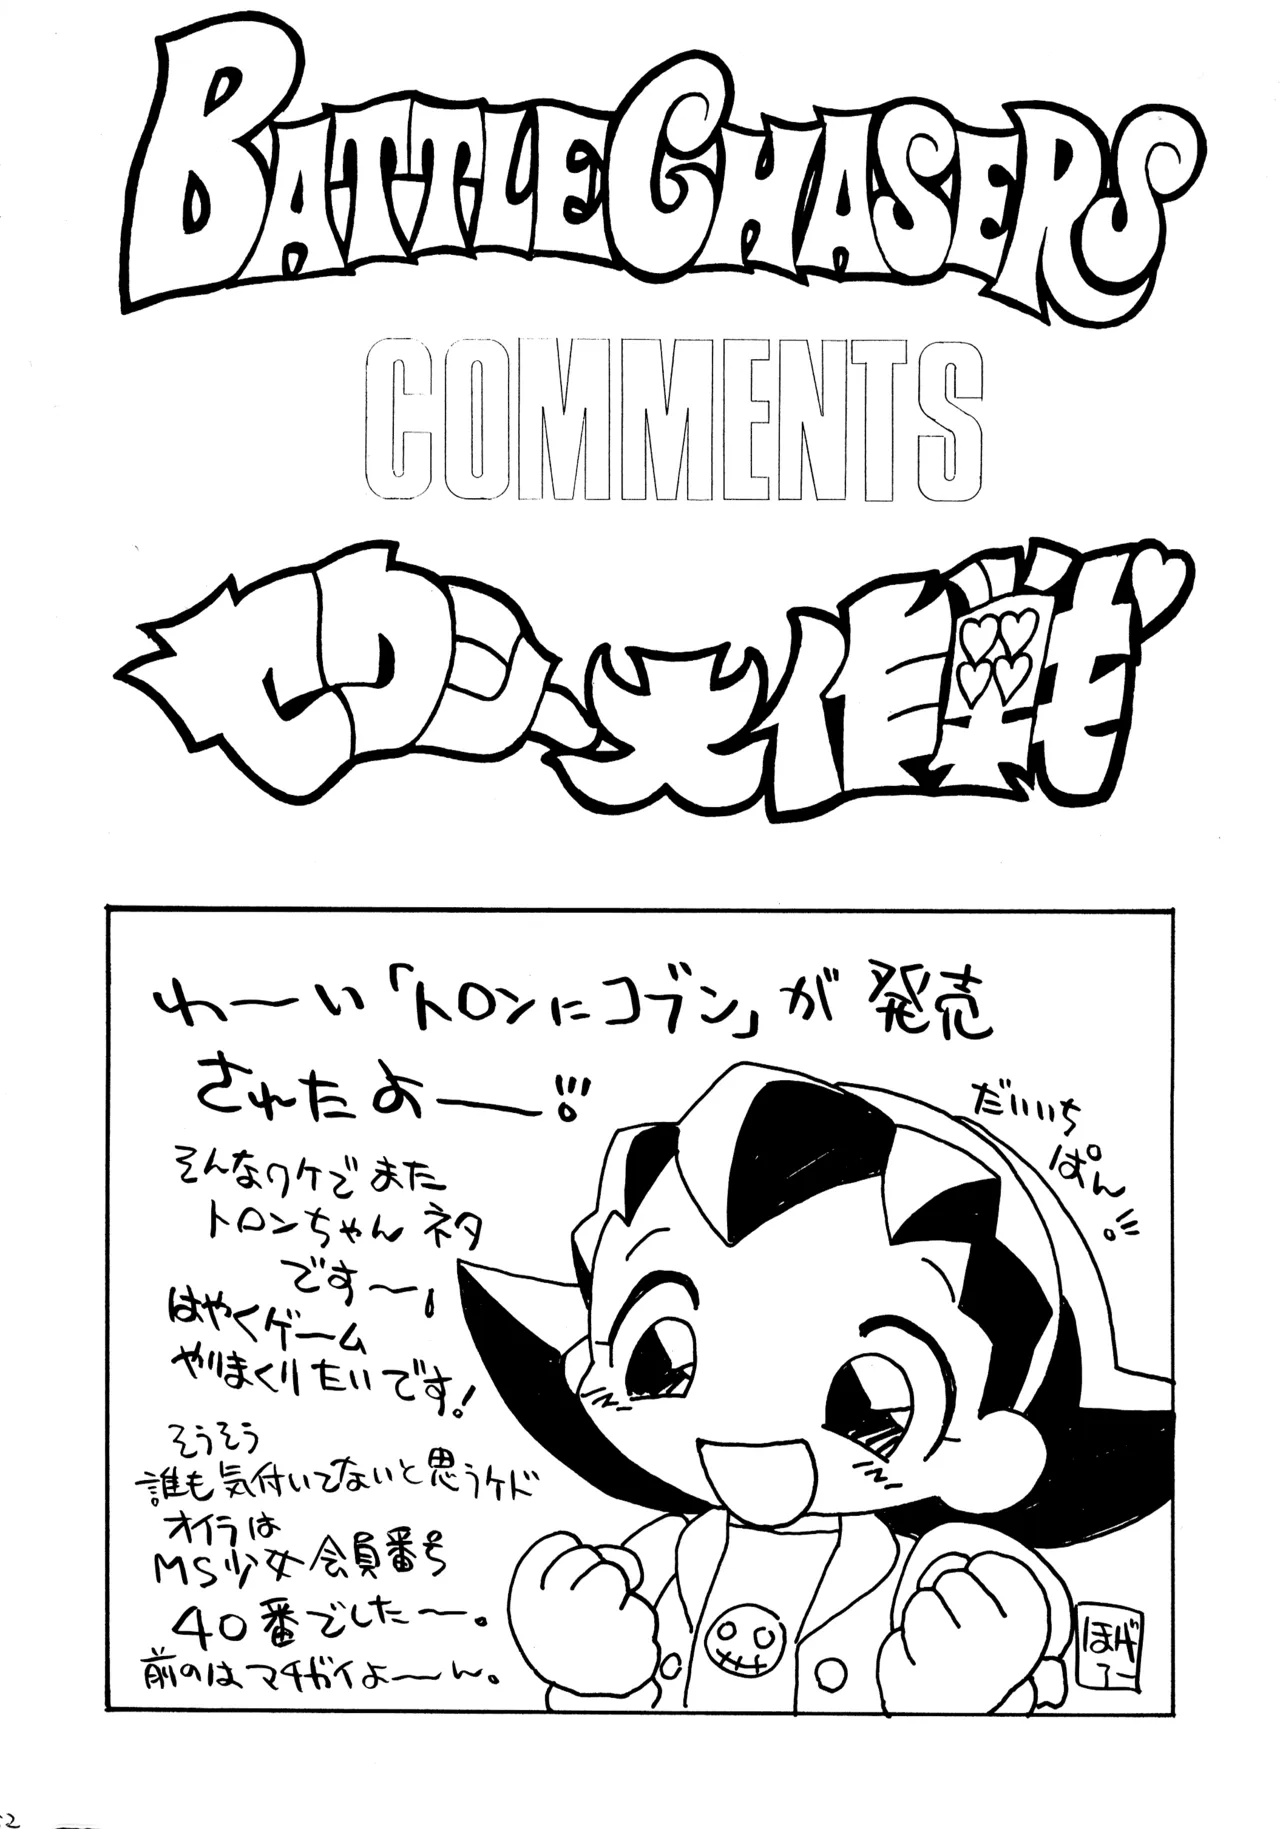 BATTLE CHASERS
COMMENTS
セクシー大作戦
わーい「トロンにコブン」が発売
されたよー!!!
だいいち
ぱん!!!
そんなワケでまた
トロンちゃんネタ
です〜!
はやくゲーム
やりまくりたいです!
そうそう
誰も気付いてないと思うケド
オイラは
MS少女会員番号
40番でした〜。
前のはマチガイよーん。
ほげ